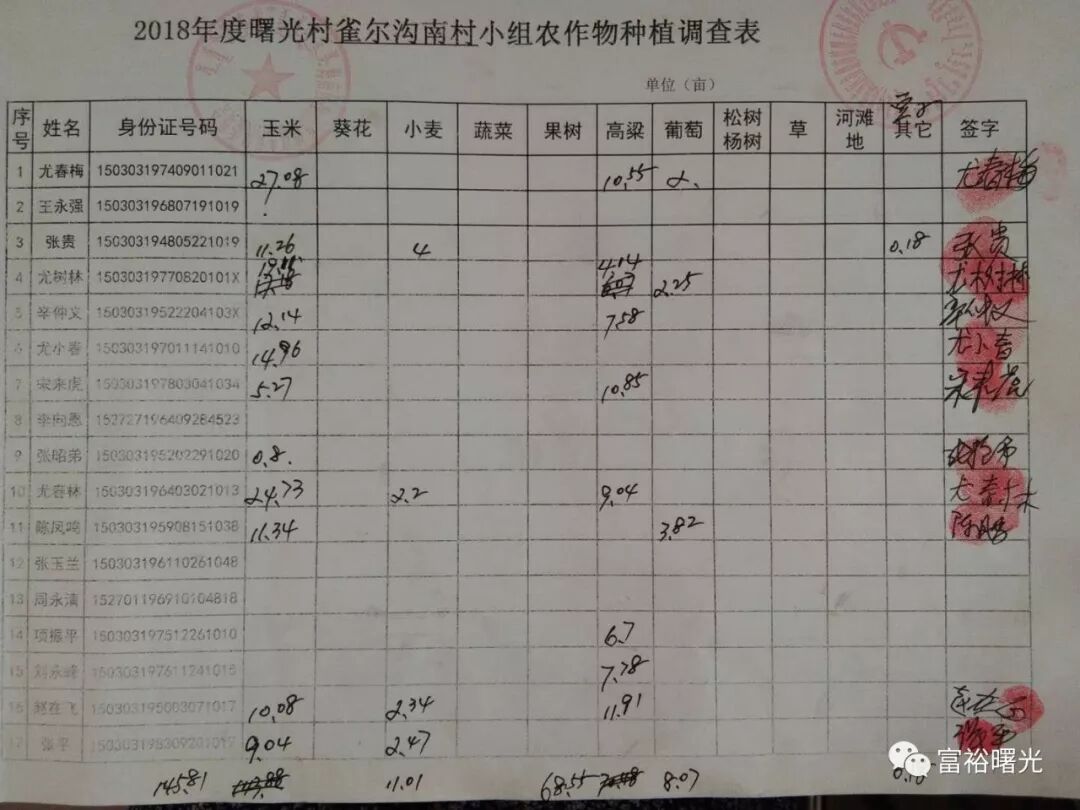 2018年度曙光村雀尔沟南村小组农作物种植调查表
单位（亩）
序号 姓名 身份证号码 玉米 葵花 小麦 蔬菜 果树 高粱 葡萄 松树杨树 草 河滩地 其它 签字
1 尤春梅 150303197409011021 27.08 10.55 2. 尤春梅
2 王永强 150303196807191019
3 张贵 150303194805221019 11.26 4 0.18 张贵
4 尤树林 15030319770820101X 19.11 4.14 2.25 尤树林
5 辛仲义 15030319522204103X 12.14 7.58
6 尤小春 150303197011141010 14.96 尤小春
7 宋来虎 150303197803041034 5.27 10.85 宋来虎
8 李向恩 152727196409284523
9 张昭弟 150303195202291020 0.8.
10 尤春林 150303196403021013 24.73 2.2 9.04 尤春林
11 陈凤鸣 150303195908151038 11.34 3.82
12 张玉兰 150303196110261048
13 周永清 152701196910104818
14 项振平 150303197512261010 6.7
15 刘永峰 150303197611241015 7.78
16 150303195003071017 10.08 2.34 11.91
17 张平 9.04 2.47
145.81 11.01 68.55 8.07 0.18
富裕曙光